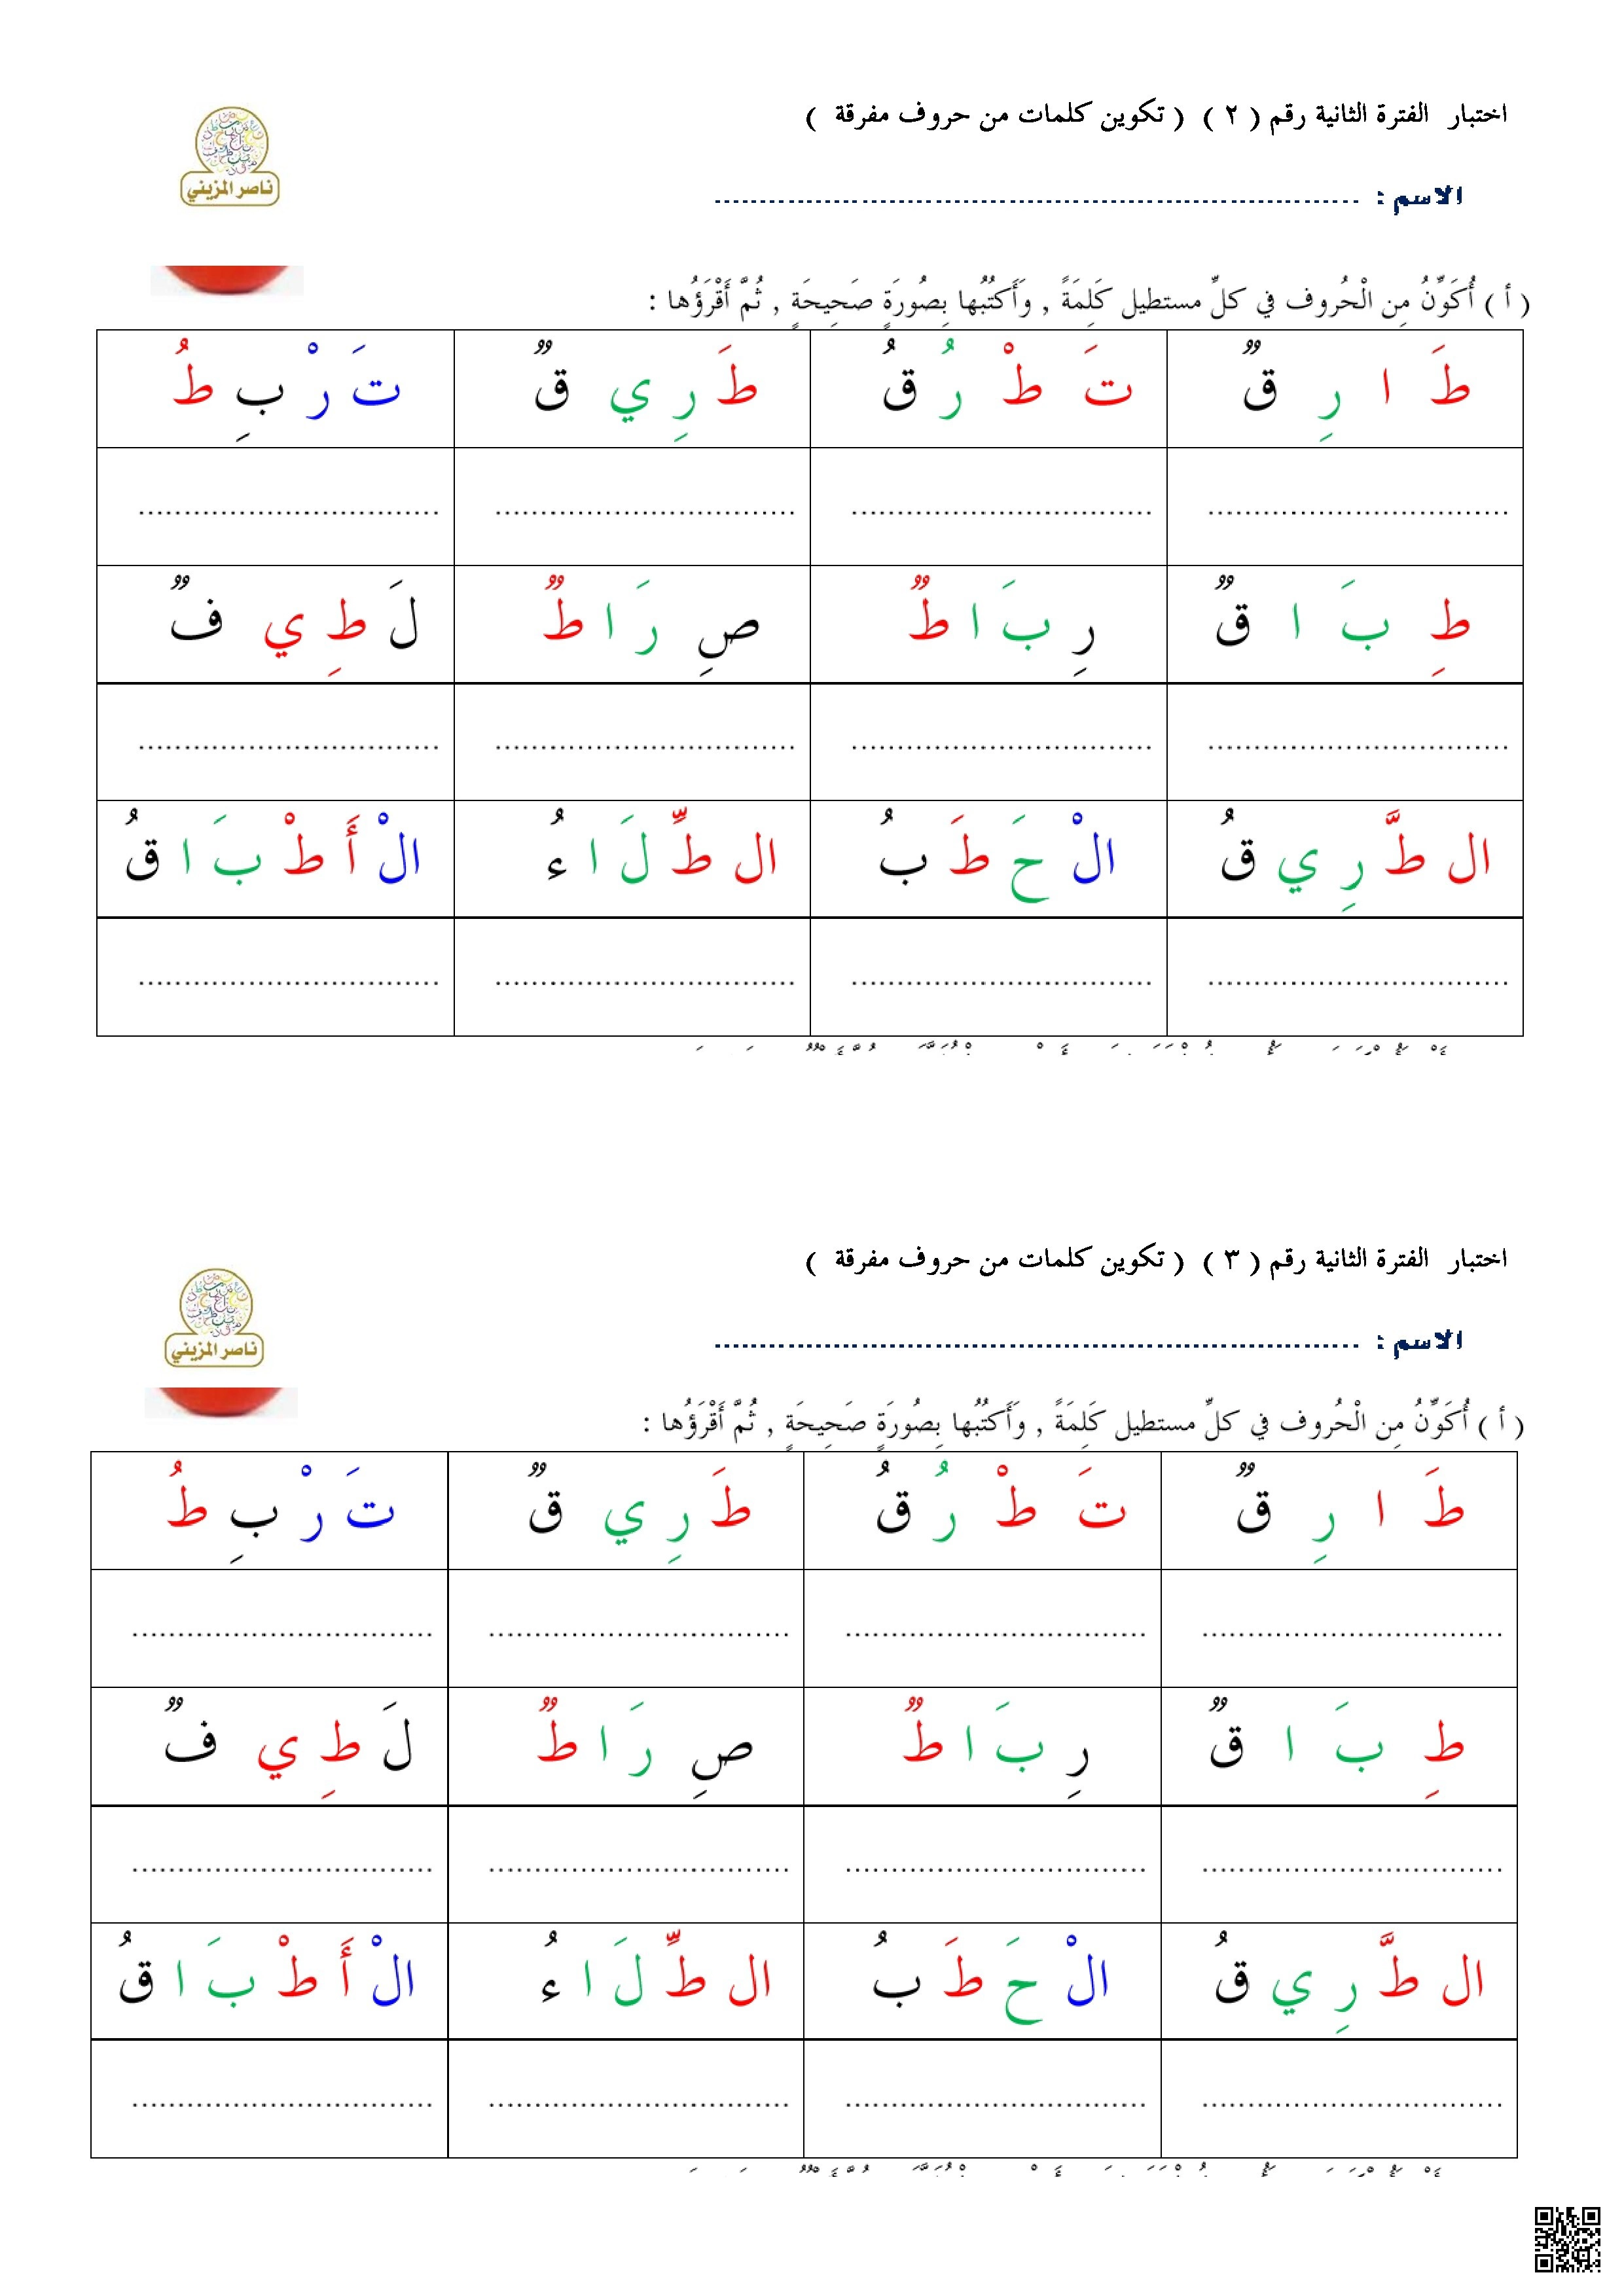 اختبار الفترة الثانية رقم ( ٢ ) ( تكوين كلمات من حروف مفرقة )
ناصر المزيني
الاسم : ........................................................................
( أ ) أُكَوِّنُ مِن الْحُروف في كلِّ مستطيل كَلِمَةً , وَأَكتُبُها بِصُورَةٍ صَحِيحَةٍ , ثُمَّ أَقْرَؤُها :
طَ ا رِ قٌ تَ طْ رُ قُ طَ رِ ي قٌ تَ رْ بِ طُ
................................. ................................. ................................. .................................
طِ بَ ا قٌ رِ بَ ا طٌ صِ رَ ا طٌ لَ طِ ي فٌ
................................. ................................. ................................. .................................
ال طَّ رِ ي قُ الْ حَ طَ بُ ال طِّ لَ ا ءُ الْ أَ طْ بَ ا قُ
................................. ................................. ................................. .................................
اختبار الفترة الثانية رقم ( ٣ ) ( تكوين كلمات من حروف مفرقة )
ناصر المزيني
الاسم : ........................................................................
( أ ) أُكَوِّنُ مِن الْحُروف في كلِّ مستطيل كَلِمَةً , وَأَكتُبُها بِصُورَةٍ صَحِيحَةٍ , ثُمَّ أَقْرَؤُها :
طَ ا رِ قٌ تَ طْ رُ قُ طَ رِ ي قٌ تَ رْ بِ طُ
................................. ................................. ................................. .................................
طِ بَ ا قٌ رِ بَ ا طٌ صِ رَ ا طٌ لَ طِ ي فٌ
................................. ................................. ................................. .................................
ال طَّ رِ ي قُ الْ حَ طَ بُ ال طِّ لَ ا ءُ الْ أَ طْ بَ ا قُ
................................. ................................. ................................. .................................